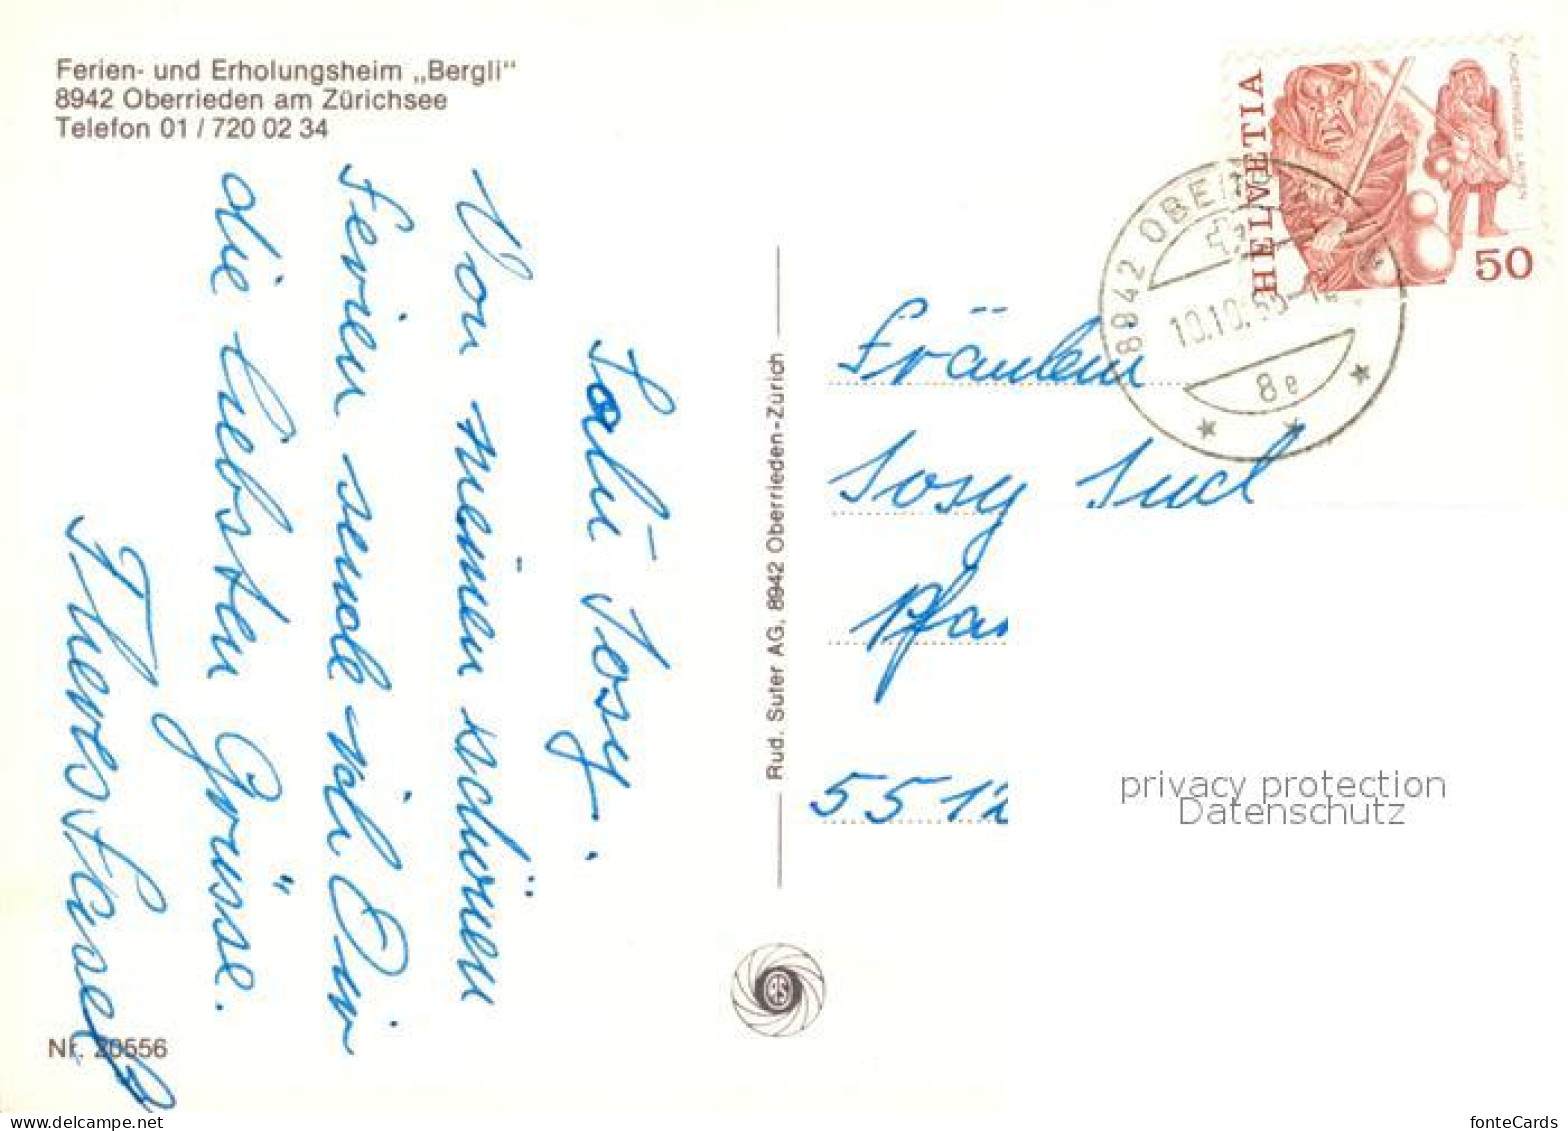 Ferien- und Erholungsheim „Bergli"
8942 Oberrieden am Zürichsee
Telefon 01 / 720 02 34
Salü Josy.
Von meinen schönen
Ferien sende ich Dir
die liebsten Grüsse.
Nr. 20556
Rud. Suter AG, 8942 Oberrieden-Zürich
HELVETIA
50
8942 OBER
10.10.
8e
Fräulein
Josy
Pfar
5512
privacy protection
Datenschutz
www.delcampe.net
fonteCards